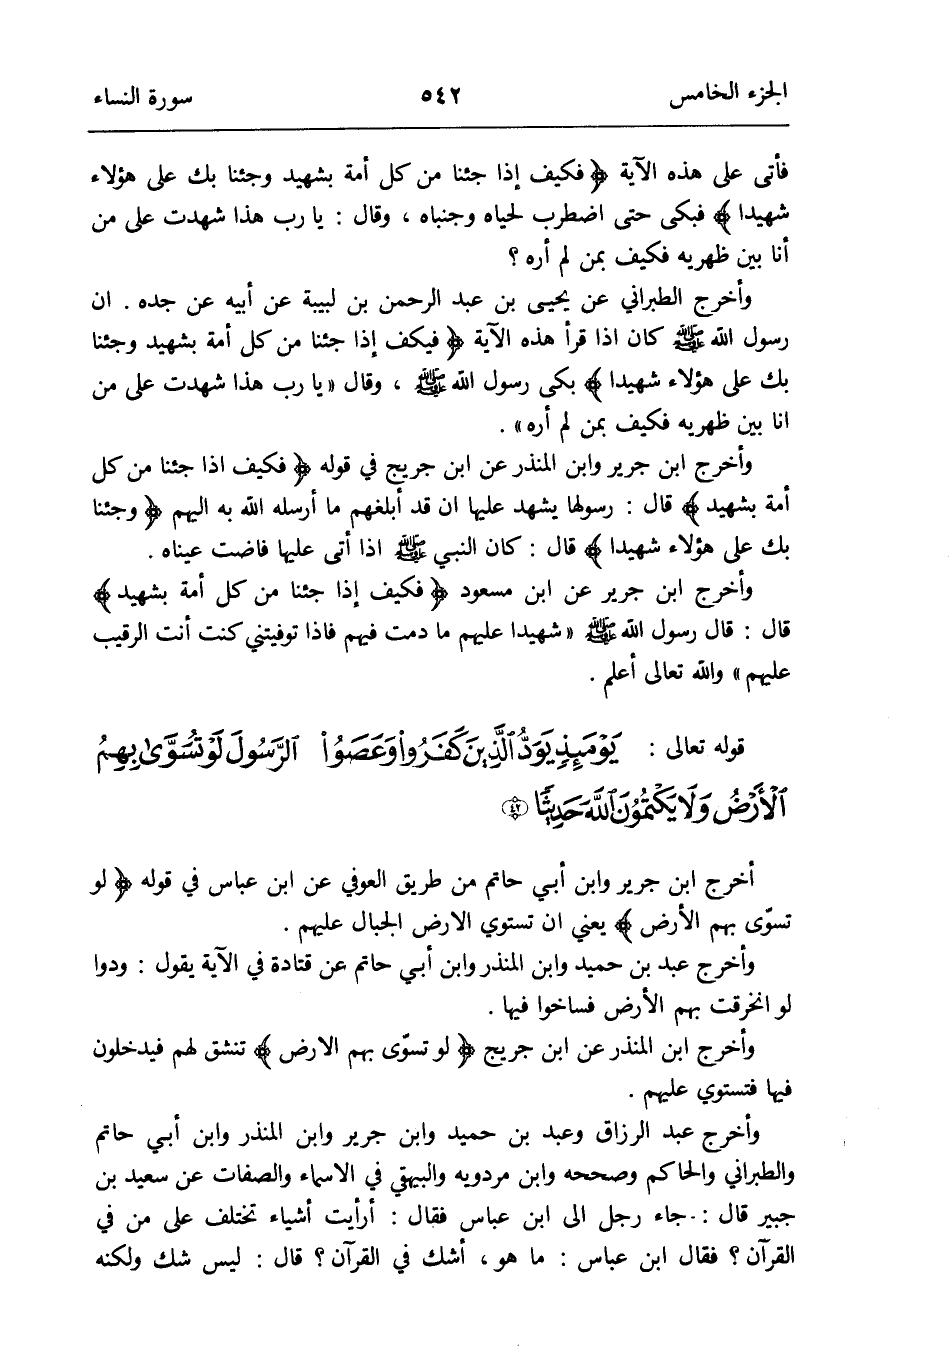 الجزء الخامس ٥٤٢ سورة النساء
فأتى على هذه الآية ﴿ فكيف إذا جئنا من كل أمة بشهيد وجئنا بك على هؤلاء
شهيدا ﴾ فبكى حتى اضطرب لحياه وجنباه ، وقال : يا رب هذا شهدت على من
أنا بين ظهريه فكيف بمن لم أره ؟
وأخرج الطبراني عن يحيى بن عبد الرحمن بن لبيبة عن أبيه عن جده . ان
رسول الله ﷺ كان اذا قرأ هذه الآية ﴿ فيكف إذا جئنا من كل أمة بشهيد وجئنا
بك على هؤلاء شهيدا ﴾ بكى رسول الله ﷺ ، وقال « يا رب هذا شهدت على من
انا بين ظهريه فكيف بمن لم أره » .
وأخرج ابن جرير وابن المنذر عن ابن جريج في قوله ﴿ فكيف اذا جئنا من كل
أمة بشهيد ﴾ قال : رسولها يشهد عليها ان قد أبلغهم ما أرسله الله به اليهم ﴿ وجئنا
بك على هؤلاء شهيدا ﴾ قال : كان النبي ﷺ اذا أتى عليها فاضت عيناه .
وأخرج ابن جرير عن ابن مسعود ﴿ فكيف إذا جئنا من كل أمة بشهيد ﴾
قال : قال رسول الله ﷺ « شهيدا عليهم ما دمت فيهم فاذا توفيتني كنت أنت الرقيب
عليهم » والله تعالى أعلم .
قوله تعالى : يَوْمَئِذٍ يَوَدُّ ٱلَّذِينَ كَفَرُوا۟ وَعَصَوُا۟ ٱلرَّسُولَ لَوْ تُسَوَّىٰ بِهِمُ
ٱلْأَرْضُ وَلَا يَكْتُمُونَ ٱللَّهَ حَدِيثًا ٤٢
أخرج ابن جرير وابن أبي حاتم من طريق العوفي عن ابن عباس في قوله ﴿ لو
تسوّى بهم الأرض ﴾ يعني ان تستوي الارض الجبال عليهم .
وأخرج عبد بن حميد وابن المنذر وابن أبي حاتم عن قتادة في الآية يقول : ودوا
لو انخرقت بهم الأرض فساخوا فيها .
وأخرج ابن المنذر عن ابن جريج ﴿ لو تسوّى بهم الارض ﴾ تنشق لهم فيدخلون
فيها فتستوي عليهم .
وأخرج عبد الرزاق وعبد بن حميد وابن جرير وابن المنذر وابن أبي حاتم
والطبراني والحاكم وصححه وابن مردويه والبيهقي في الاسماء والصفات عن سعيد بن
جبير قال : جاء رجل الى ابن عباس فقال : أرأيت أشياء تختلف على من في
القرآن ؟ فقال ابن عباس : ما هو ، أشك في القرآن ؟ قال : ليس شك ولكنه